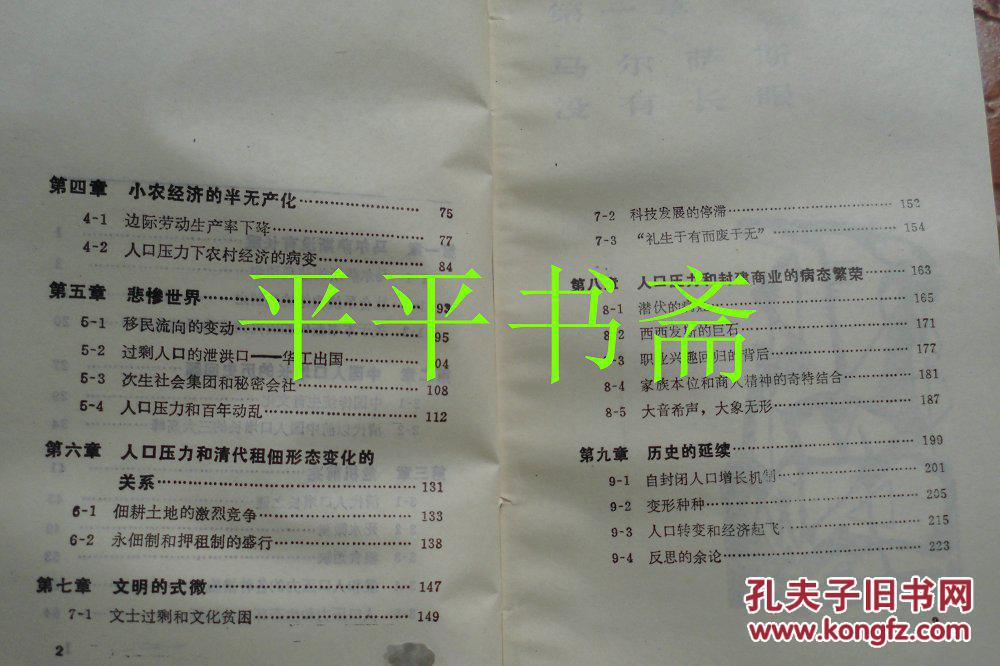 第四章 小农经济的半无产化 75
4-1 边际劳动生产率下降 77
4-2 人口压力下农村经济的病变 84
第五章 悲惨世界 93
5-1 移民流向的变动 95
5-2 过剩人口的泄洪口——华工出国 104
5-3 次生社会集团和秘密会社 108
5-4 人口压力和百年动乱 112
第六章 人口压力和清代租佃形态变化的
关系 131
6-1 佃耕土地的激烈竞争 133
6-2 永佃制和押租制的盛行 138
第七章 文明的式微 147
7-1 文士过剩和文化贫困 149
2
7-2 科技发展的停滞 152
7-3 “礼生于有而废于无” 154
第八章 人口压力和封建商业的病态繁荣 163
8-1 潜伏的 165
8-2 西西发斯的巨石 171
8-3 职业兴趣回归的背后 177
8-4 家族本位和商人精神的奇特结合 181
8-5 大音希声，大象无形 187
第九章 历史的延续 199
9-1 自封闭人口增长机制 201
9-2 变形种种 205
9-3 人口转变和经济起飞 215
9-4 反思的余论 223
平平书斋
孔夫子旧书网
www.kongfz.com